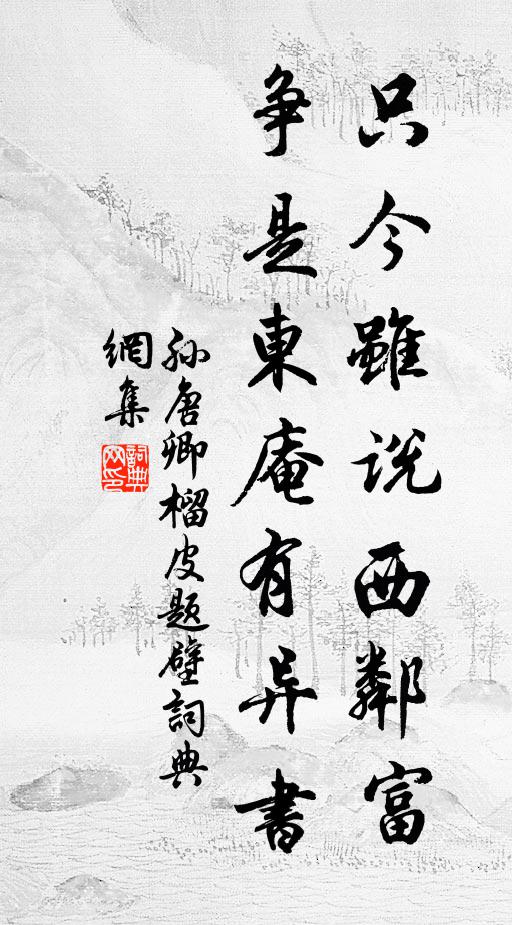 只今雖説西鄰富
争是東庵有异書
孫唐卿榴皮題壁詞典
網集
詞典
网印